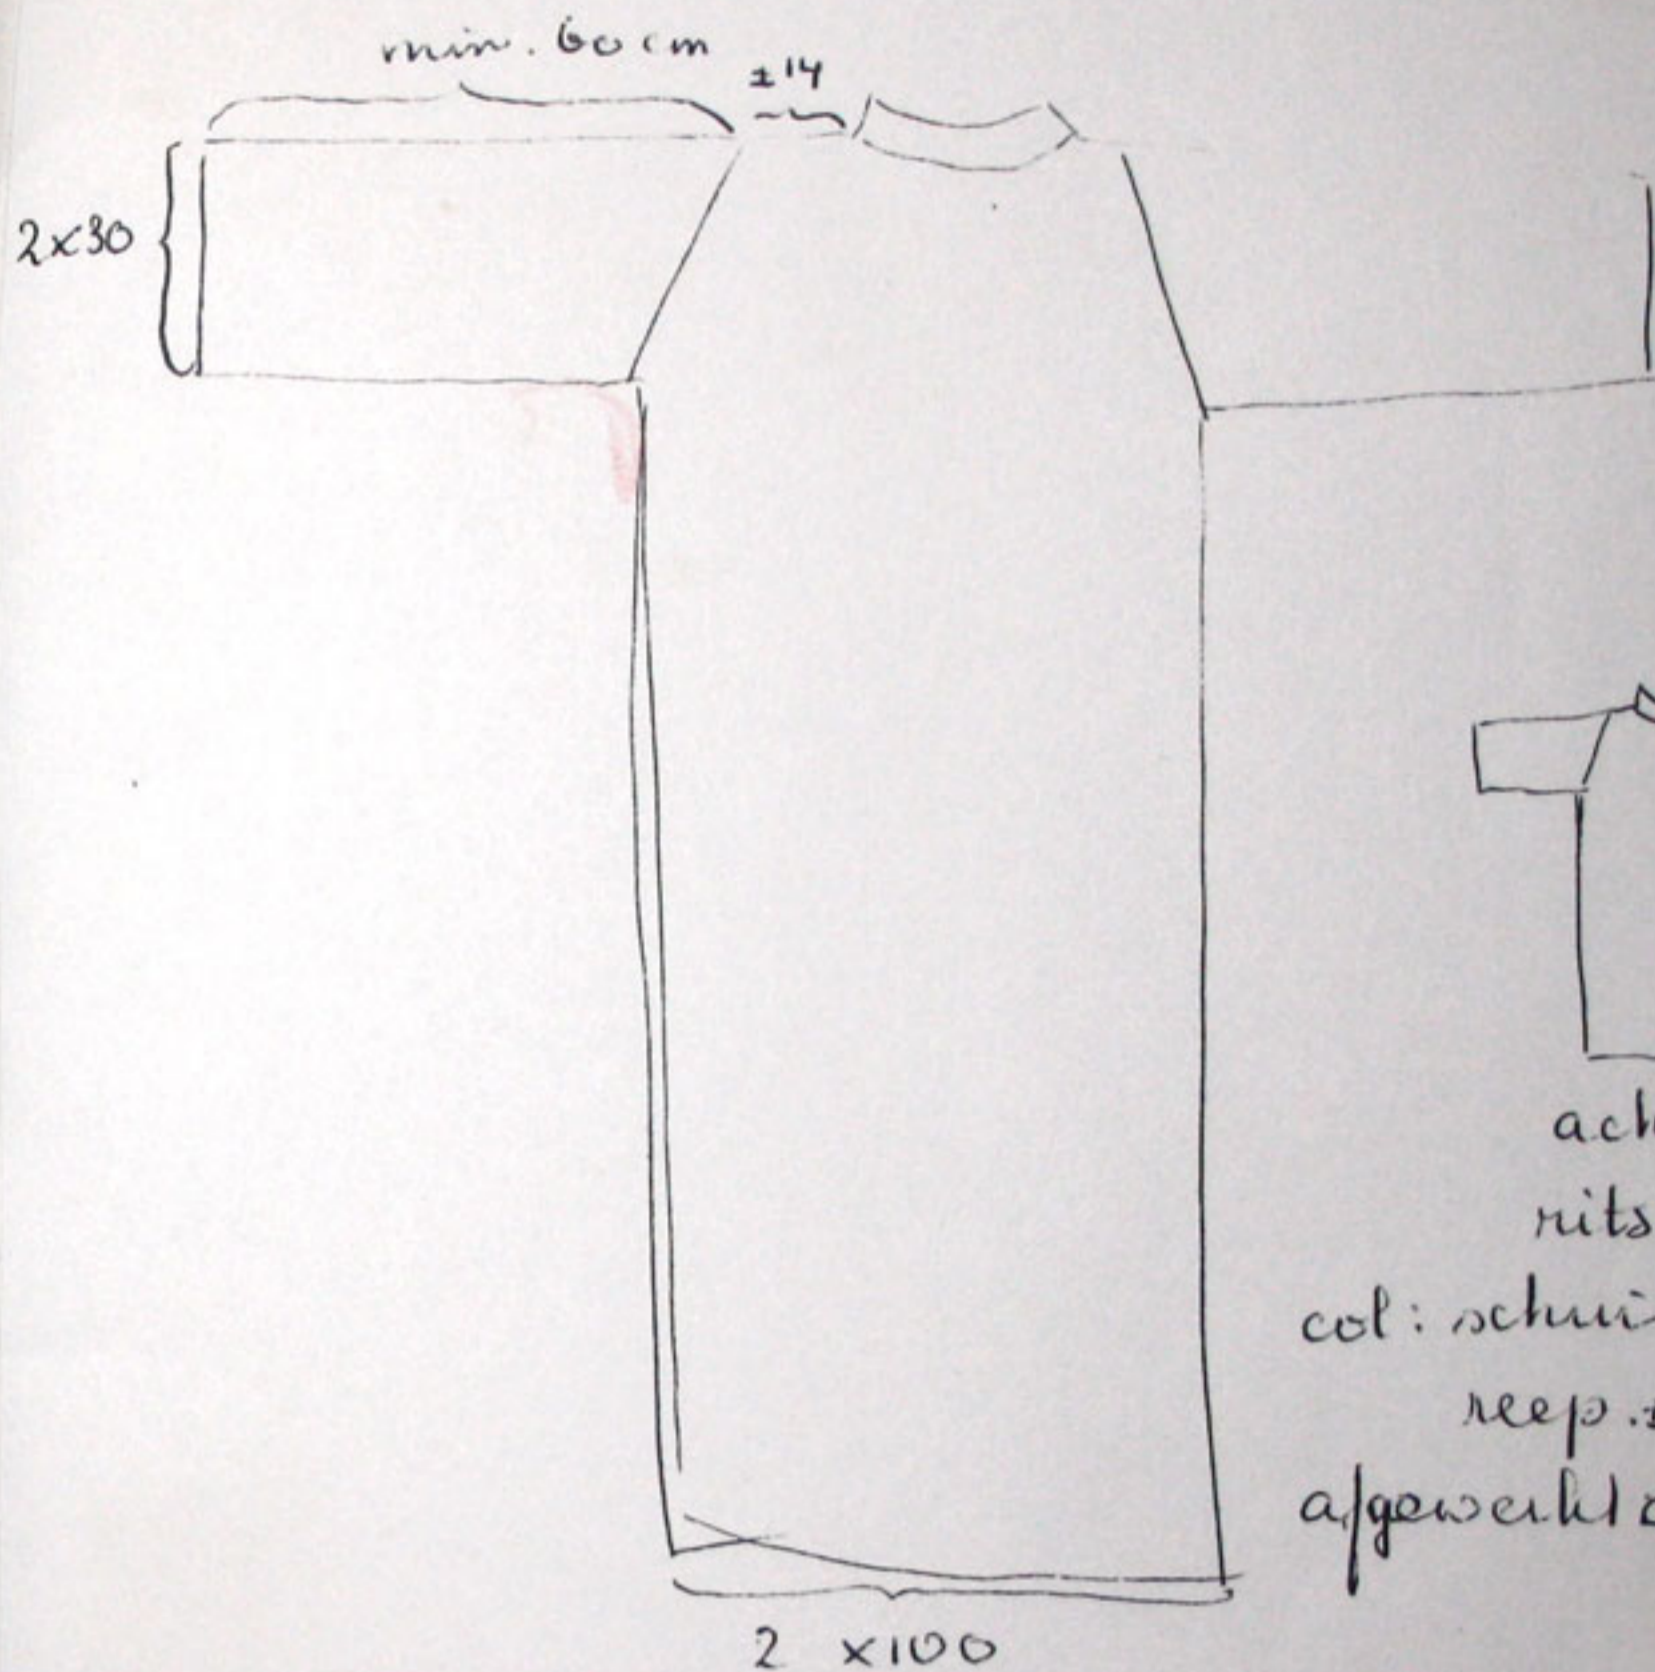 min. 60 cm
±14
2x30
ach
rits
col: schui
reep.±
afgewerkt
2 x100